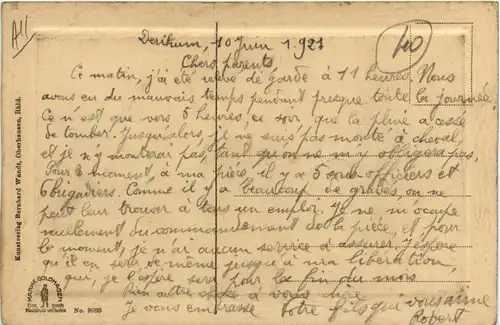 All
10
Derikum, 10 Juin 1921
Chers parents
Ce matin, j'ai été relevé de garde à 11 heures. Nous
avons eu du mauvais temps pendant presque toute la journée.
Ce n'est que vers 5 heures, ce soir, que la pluie a cessé
de tomber. Jusqu'alors, je ne suis pas monté à cheval,
et je n'y monterai pas, tant qu'on ne m'y obligera pas.
Pour le moment, à ma pièce, il y a 5 sous-officiers et
6 brigadiers. Comme il y a beaucoup de gradés, on ne
peut leur trouver à tous un emploi. Je ne m'occupe
nullement du commandement de la pièce, et pour
le moment, je n'ai aucun service à assurer. J'espère
qu'il en sera de même jusqu'à ma libération,
qui, je l'espère sera pour la fin du mois
Rien autre chose à vous dire.
Je vous embrasse Votre fils qui vous aime
Robert
Kunstverlag Bernhard Wandt, Oberhausen, Rhld.
MARKE GOLDHAGEN
Nachdruck verboten
No. 9069